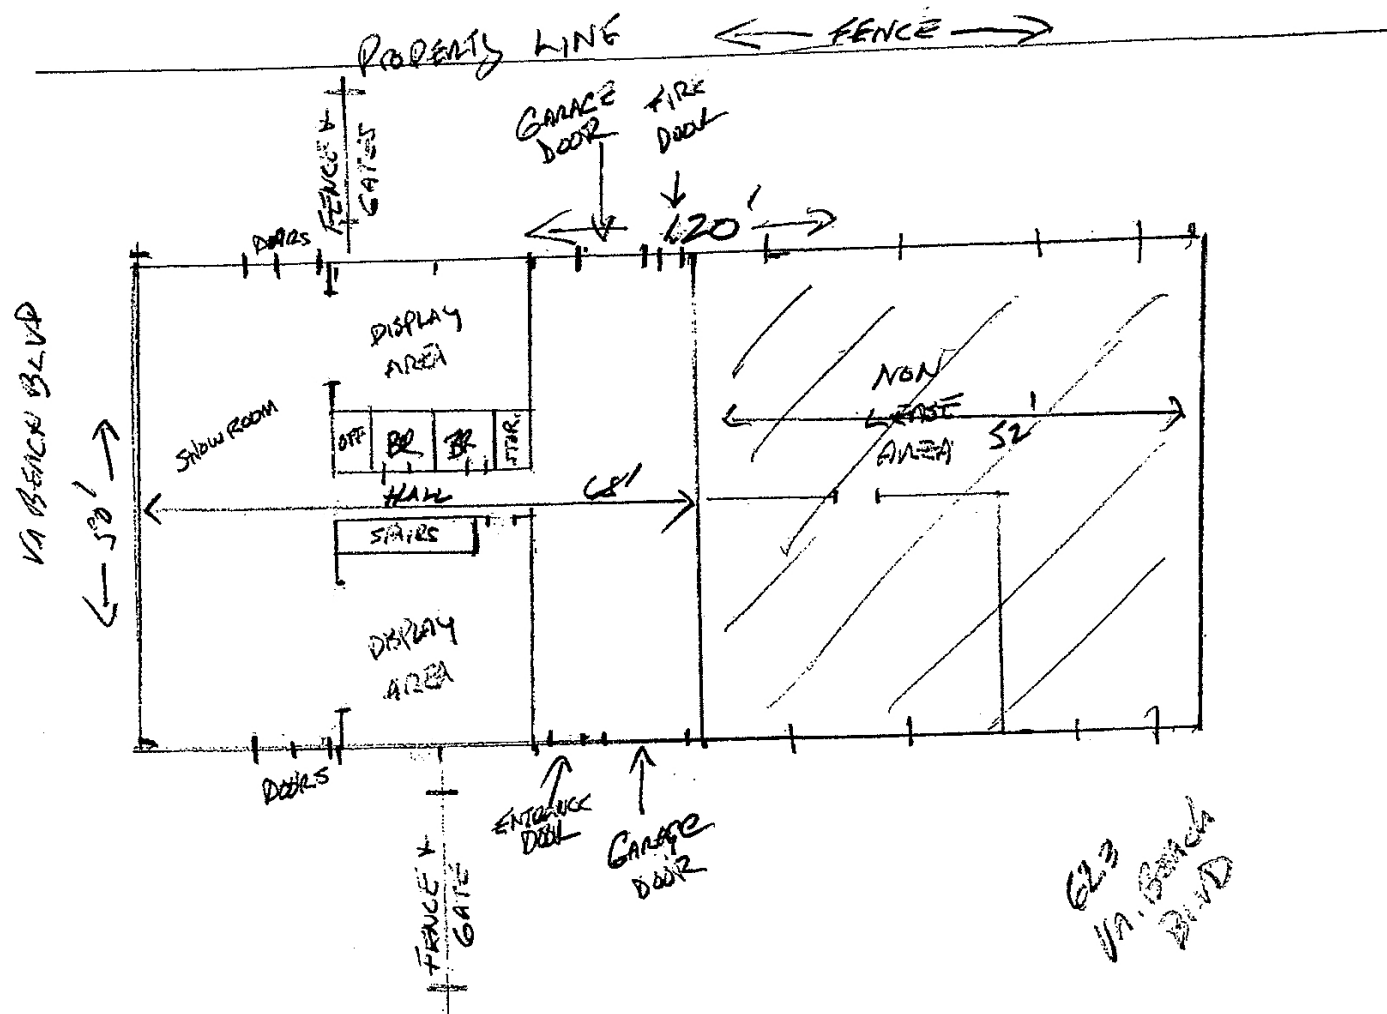 PROPERTY LINE
FENCE
FENCE &
GATES
GARAGE
DOOR
FIRE
DOOR
120'
DOORS
VA BEACH BLVD
50'
SHOWROOM
DISPLAY
AREA
OFF
BR
BR
STOR.
HALL
68'
STAIRS
DISPLAY
AREA
NON
LEASE
AREA
52'
DOORS
ENTRANCE
DOOR
GARAGE
DOOR
FENCE &
GATE
623
VA. Beach
BLVD